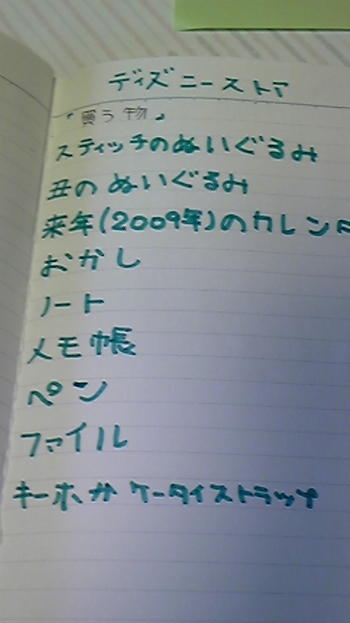 ディズニーストア
「買う物」
スティッチのぬいぐるみ
丑のぬいぐるみ
来年(2009年)のカレンダ
おかし
ノート
メモ帳
ペン
ファイル
キーホか ケータイストラップ